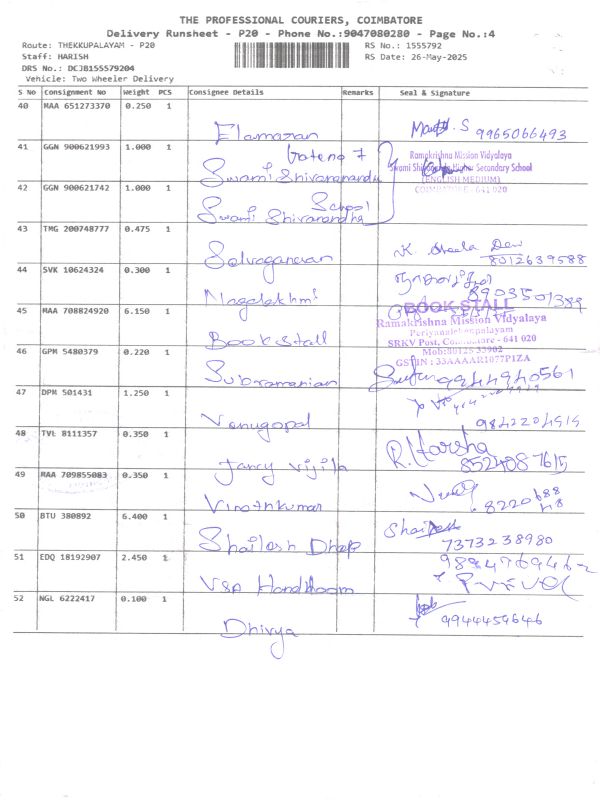 THE PROFESSIONAL COURIERS, COIMBATORE
Delivery Runsheet - P20 - Phone No.:9047080280 - Page No.:4
Route: THEKKUPALAYAM - P20
RS No.: 1555792
Staff: HARISH
RS Date: 26-May-2025
DRS No.: DCJB155579204
Vehicle: Two Wheeler Delivery
S No Consignment No Weight PCS Consignee Details Remarks Seal & Signature
40 MAA 651273370 0.250 1
Elamaran
S 9965066493
41 GGN 900621993 1.000 1
Swami Shivananda
Ramakrishna Mission Vidyalaya
Swami Shivananda Higher Secondary School
(ENGLISH MEDIUM)
COIMBATORE - 641 020
42 GGN 900621742 1.000 1
School
Swami Shivanandha
43 TMG 200748777 0.475 1
Selvaganavan
8012639588
44 SVK 10624324 0.300 1
Nagalakhmi
8903501389
45 MAA 708824920 6.150 1
Book stall
BOOK STALL
Ramakrishna Mission Vidyalaya
Periyanaickenpalayam
SRKV Post, Coimbatore - 641 020
Mob:80125 33902
GSTIN : 33AAAAR1077P1ZA
46 GPM 5480379 0.220 1
Subramanian
9944940561
47 DPM 501431 1.250 1
Venugopal
9842204515
48 TVL 8111357 0.350 1
Jancy vijila
R. Harsha
8524087615
49 MAA 709855083 0.350 1
Vinothkumar
8220688
48
50 BTU 380892 6.400 1
Shailesh
7373238980
51 EDQ 18192907 2.450 1
VSP Handloom
52 NGL 6222417 0.100 1
Dhivya
9944459646